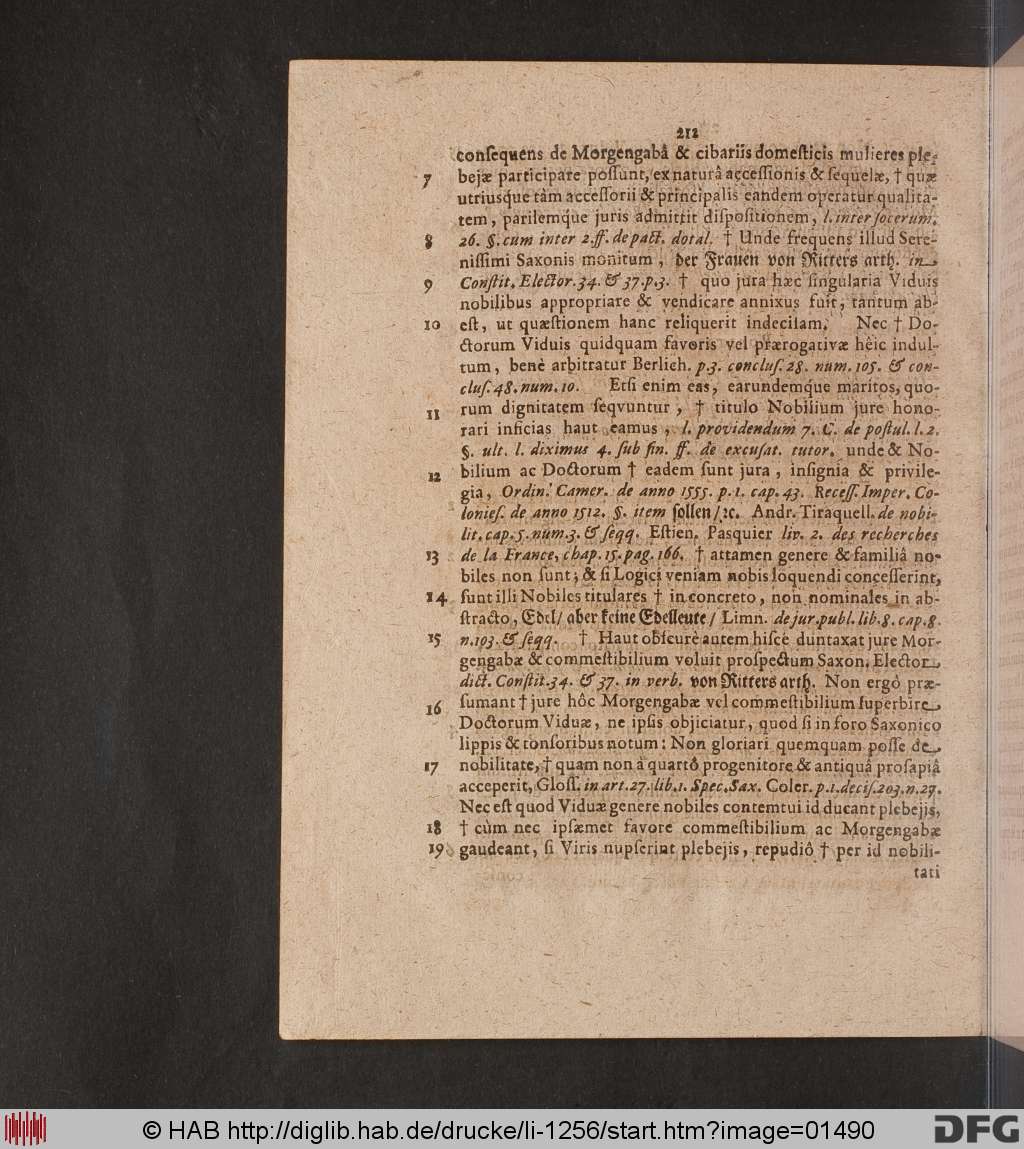 212
conſequens de Morgengabâ & cibariis domeſticis mulieres ple-
7 bejæ participare poſſunt, ex naturâ acceſſionis & ſequelæ, † quæ
utriusque tàm acceſſorii & principalis eandem operatur qualita-
tem, parilemq́ue juris admittit diſpoſitionem, l. inter ſocerum.
8 26. §. cum inter 2. ff. de pact. dotal. † Unde frequens illud Sere-
niſſimi Saxonis monitum, der Frauen von Ritters arth. in
9 Conſtit. Elector. 34. & 37. p. 3. † quo jura hæc ſingularia Viduis
nobilibus appropriare & vendicare annixus fuit, tantum ab-
10 eſt, ut quæſtionem hanc reliquerit indeciſam. Nec † Do-
ctorum Viduis quidquam favoris vel prærogativæ hêic indul-
tum, benè arbitratur Berlich. p. 3. concluſ. 28. num. 105. & con-
cluſ. 48. num. 10. Etſi enim eas, earundemq́ue maritos, quo-
11 rum dignitatem ſeqvuntur, † titulo Nobilium jure hono-
rari inficias haut eamus, l. providendum 7. C. de poſtul. l. 2.
§. ult. l. diximus 4. ſub fin. ff. de excuſat. tutor. unde & No-
12 bilium ac Doctorum † eadem ſunt jura, inſignia & privile-
gia, Ordin. Camer. de anno 1555. p. 1. cap. 43. Receſſ. Imper. Co-
lonieſ. de anno 1512. §. item ſollen / ꝛc. Andr. Tiraquell. de nobi-
lit. cap. 5. num. 3. & ſeqq. Eſtien. Pasquier liv. 2. des recherches
13 de la France, chap. 15. pag. 166. † attamen genere & familiâ no-
biles non ſunt; & ſi Logici veniam nobis loquendi conceſſerint,
14 ſunt illi Nobiles titulares † in concreto, non nominales in ab-
ſtracto, Edel / aber keine Edelleute / Limn. de jur. publ. lib. 8. cap. 8.
15 n. 193. & ſeqq. † Haut obſcurè autem hiſce duntaxat jure Mor-
gengabæ & commeſtibilium voluit proſpectum Saxon. Elector
dict. Conſtit. 34. & 37. in verb. von Ritters arth. Non ergò præ-
16 ſumant † jure hôc Morgengabæ vel commeſtibilium ſuperbire
Doctorum Viduæ, ne ipſis objiciatur, quod ſi in foro Saxonico
lippis & tonſoribus notum: Non gloriari quemquam poſſe de
17 nobilitate, † quam non à quartô progenitore & antiquâ proſapiâ
acceperit, Gloſſ. in art. 27. lib. 1. Spec. Sax. Coler. p. 1. deciſ. 203. n. 27.
Nec eſt quod Viduæ genere nobiles contemtui id ducant plebejis,
18 † cùm nec ipſæmet favore commeſtibilium ac Morgengabæ
19 gaudeant, ſi Viris nupſerint plebejis, repudiô † per id nobili-
tati
© HAB http://diglib.hab.de/drucke/li-1256/start.htm?image=01490
DFG